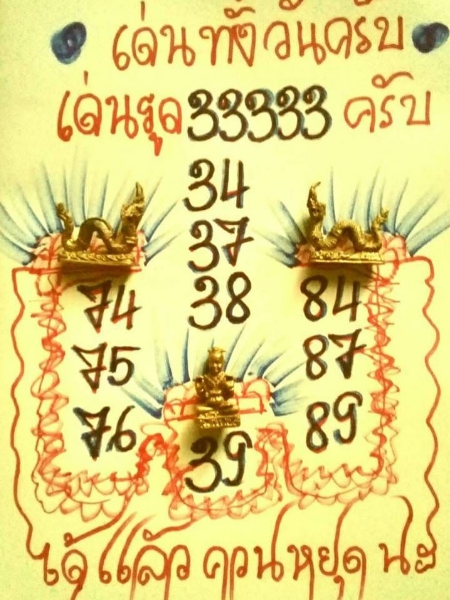 เด่นทั้งวันครับ
เด่นรูด33333 ครับ
34
37
38
74
75
76
84
87
89
39
ได้แล้วควรหยุดนะ